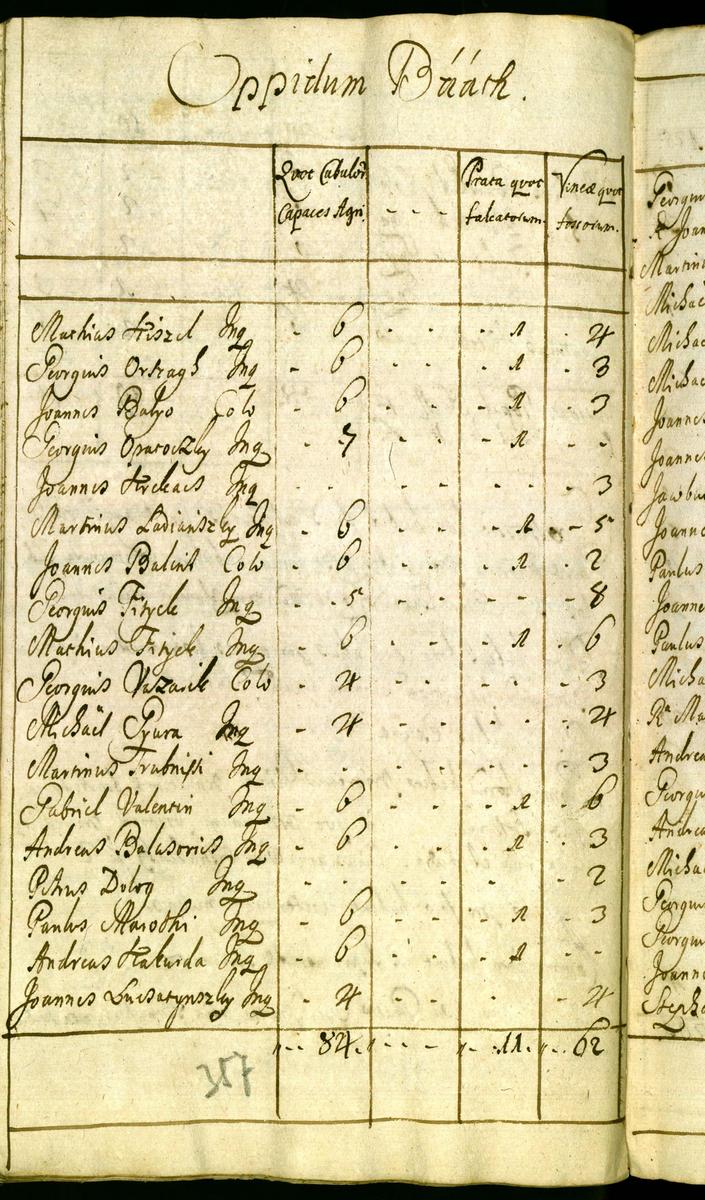 Oppidum Bááth.
Quot Cubulor. Capaces Agri - - - Prata quot falcatorum. Vineæ quot fossorum.
Mathias Hiszel Inq - 6 - - - 1 - 4
Georgius Ortzagh Inq - 6 - - - 1 - 3
Joannes Balyo Colo - 6 - - - 1 - 3
Georgius Opatoczky Inq - 7 - - - 1 - -
Joannes Inq - - - - - - - 3
Martinus Ladianszky Inq - 6 - - - 1 - 5
Joannes Balint Colo - 6 - - - 1 - 2
Georgius Fityek Inq - 5 - - - - - 8
Mathias Fityek Inq - 6 - - - 1 - 6
Georgius Vazarik Colo - 4 - - - - - 3
Michaël Gyura Inq - 4 - - - - - 4
Martinus Inq - - - - - - - 3
Gabriel Valentin Inq - 6 - - - 1 - 6
Andreas Balasovics Inq - 6 - - - 1 - 3
Petrus Dolog Inq - - - - - - - 2
Paulus Marothi Inq - 6 - - - 1 - 3
Andreas Inq - 6 - - - 1 - -
Joannes Inq - 4 - - - - - 4
84. 11. 62
357
Georgiu
Joan
Martin
Michae
Michae
Michae
Joanne
Joanne
Joanne
Paulus
Joanne
Paulus
Micha
Andrea
Georgiu
Andrea
Michae
Georgiu
Georgiu
Joanne
Steph